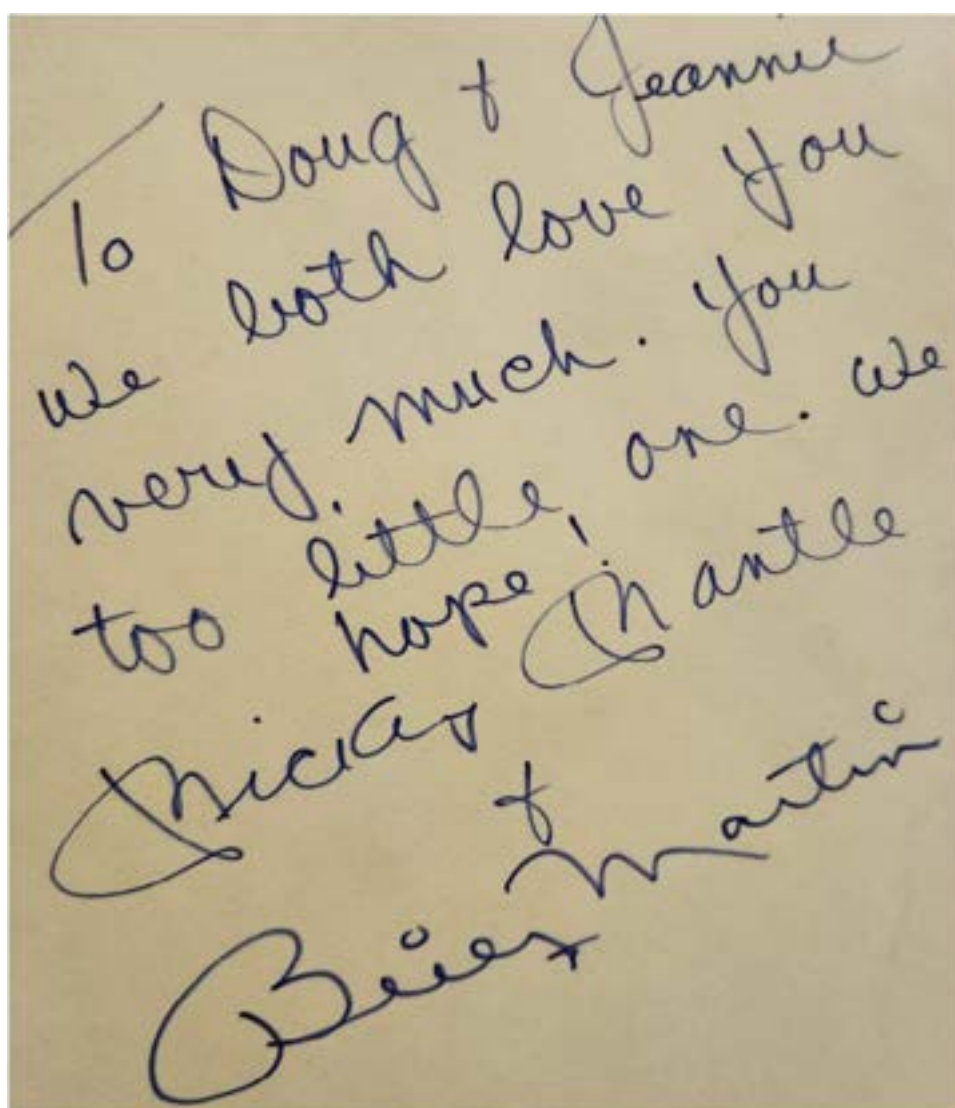 To Doug + Jeannie
we both love you
very much. you
too little one. we
hope!
Mickey Mantle
+
Billy Martin